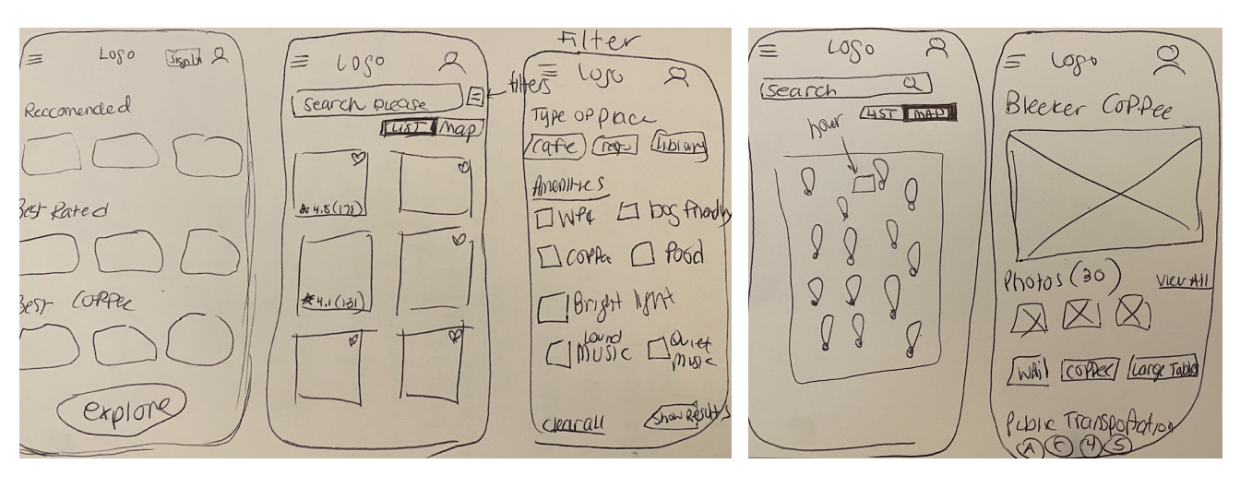 Logo
Sign In
Reccomended
Best Rated
Best Coffee
explore
Logo
Search please
filters
LIST Map
★ 4.5 (171)
★ 4.1 (131)
Filter
Logo
Type of place
Cafe library
Amenities
Dog friendly
Coffee Food
Bright light
Loud Music Quiet Music
clear all Show Results
Logo
Search
LIST MAP
hour
Logo
Bleeker Coffee
Photos (30) View All
Wifi Coffee Large Table
Public Transportation
A C 4 5